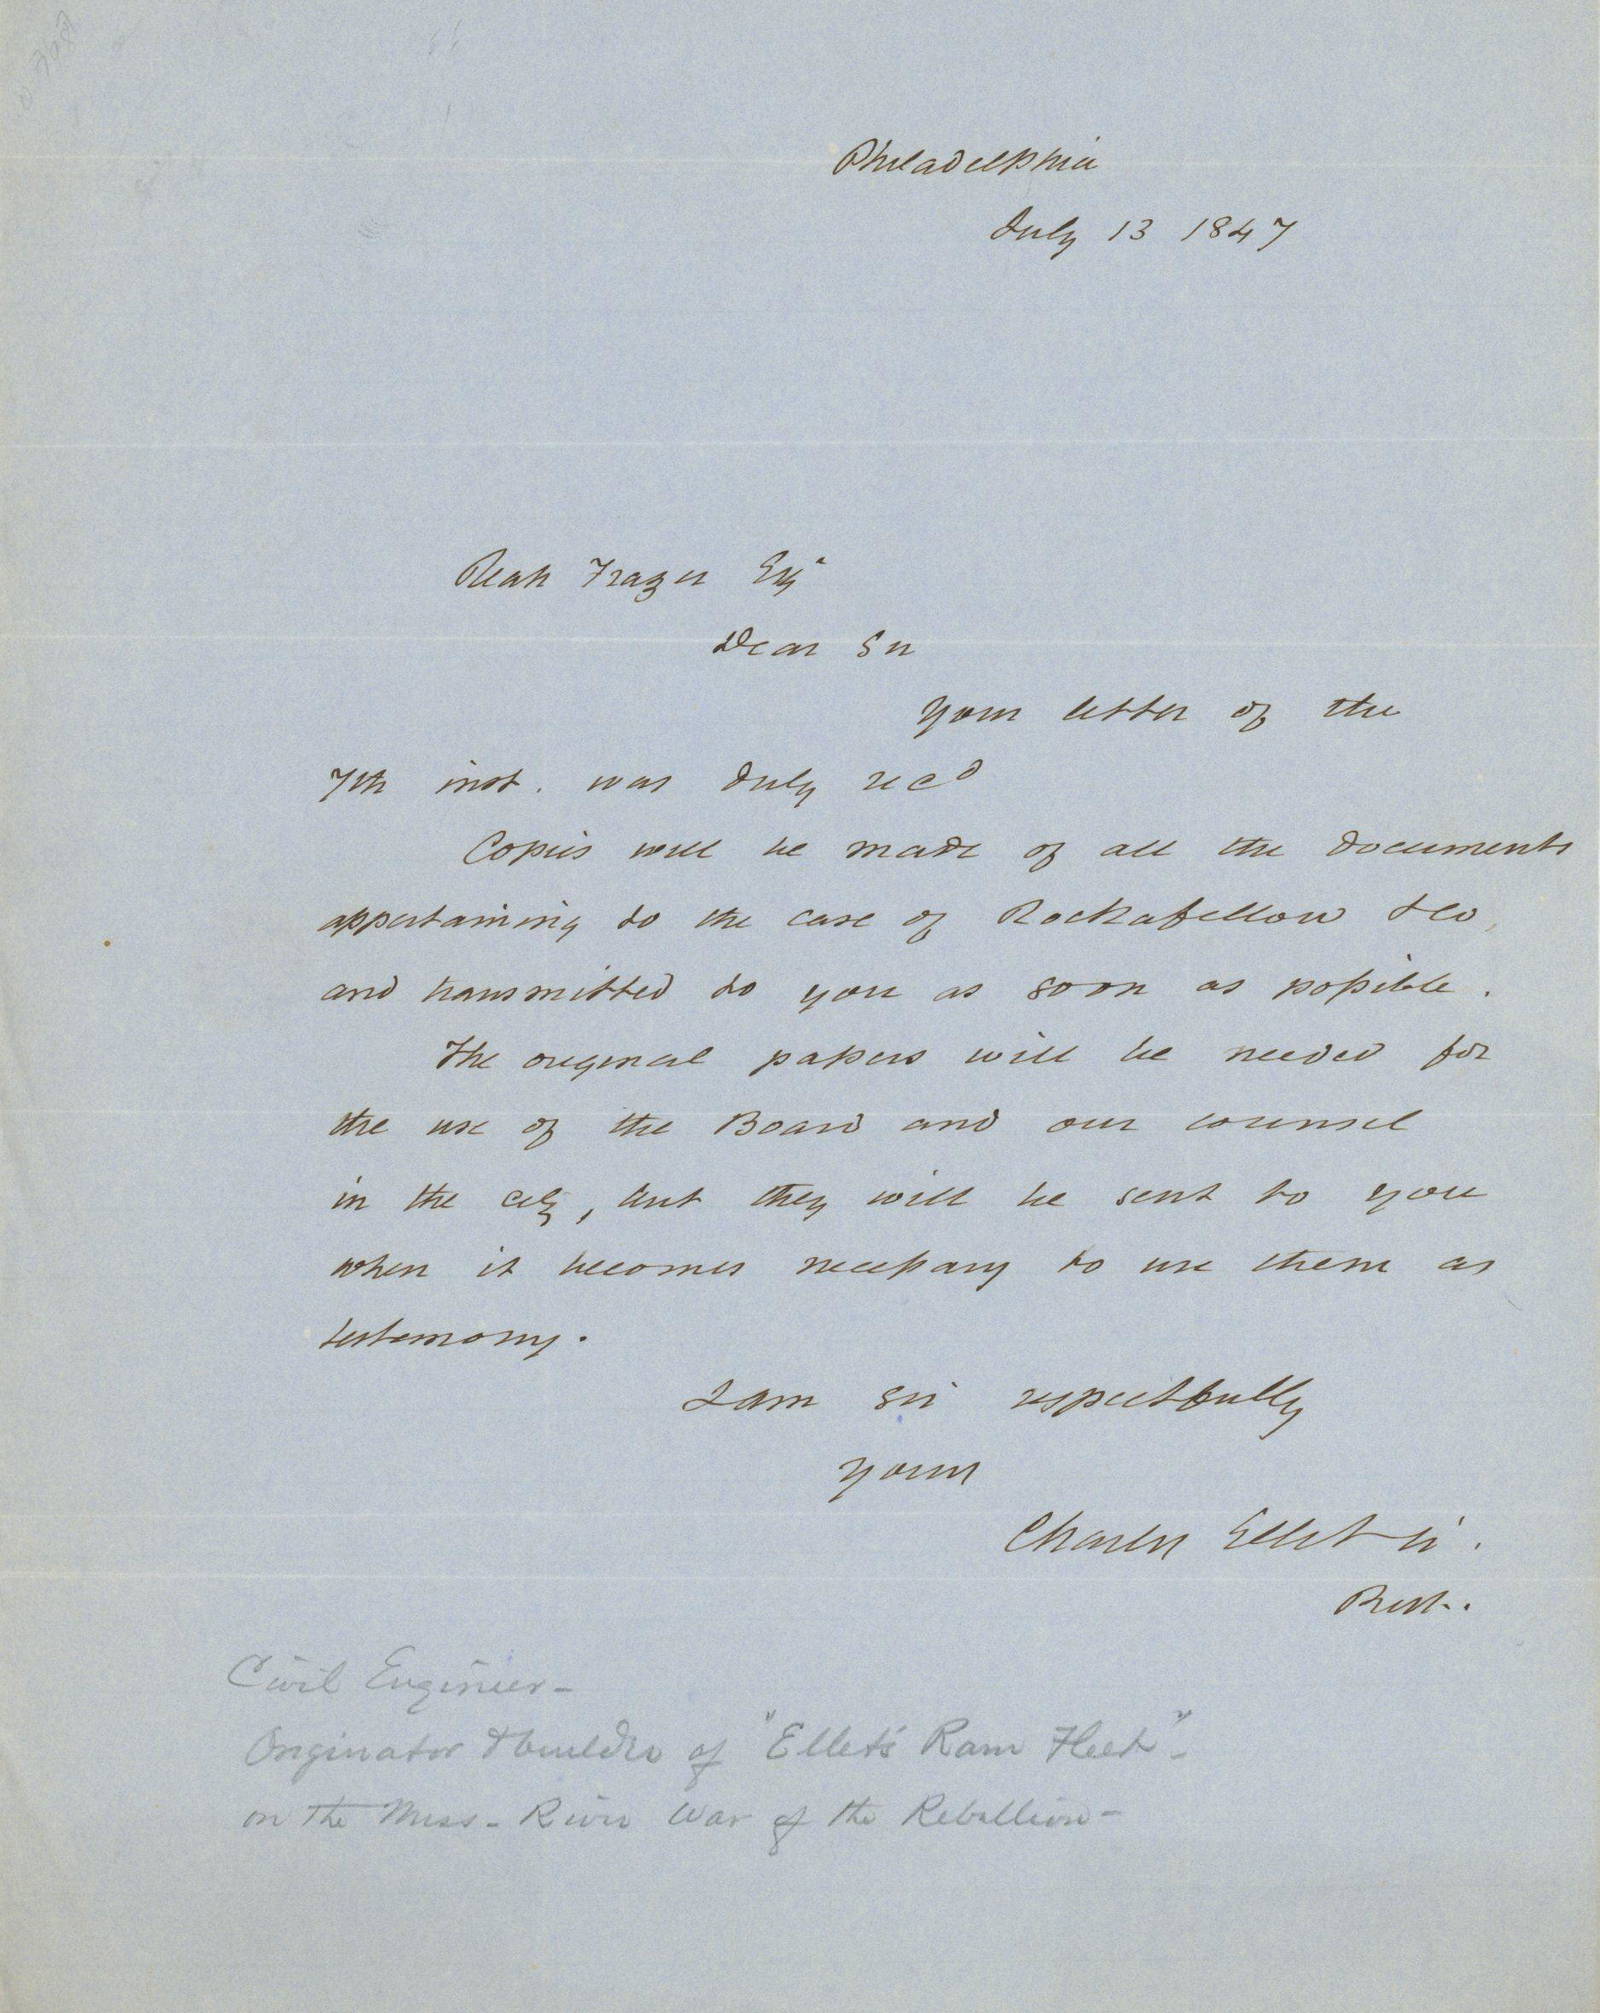 Philadelphia
July 13 1847
Reah Frazer Esqr
Dear Sir
Your letter of the
7th inst. was duly recd
Copies will be made of all the documents
appertaining to the case of Rockafellow & Co,
and transmitted to you as soon as possible.
The original papers will be needed for
the use of the Board and our counsel
in the city, but they will be sent to you
when it becomes necessary to use them as
testimony.
I am Sir respectfully
Yours
Charles Ellet Jr.
Prest.
Civil Engineer -
Originator & builder of "Ellet's Ram Fleet" -
on the Miss - River War of the Rebellion -